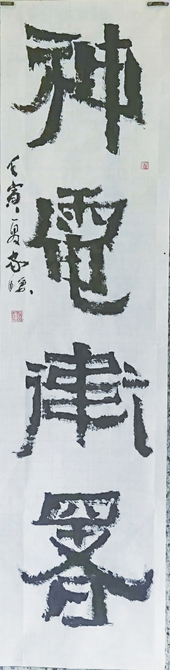 神電衛署
壬寅夏